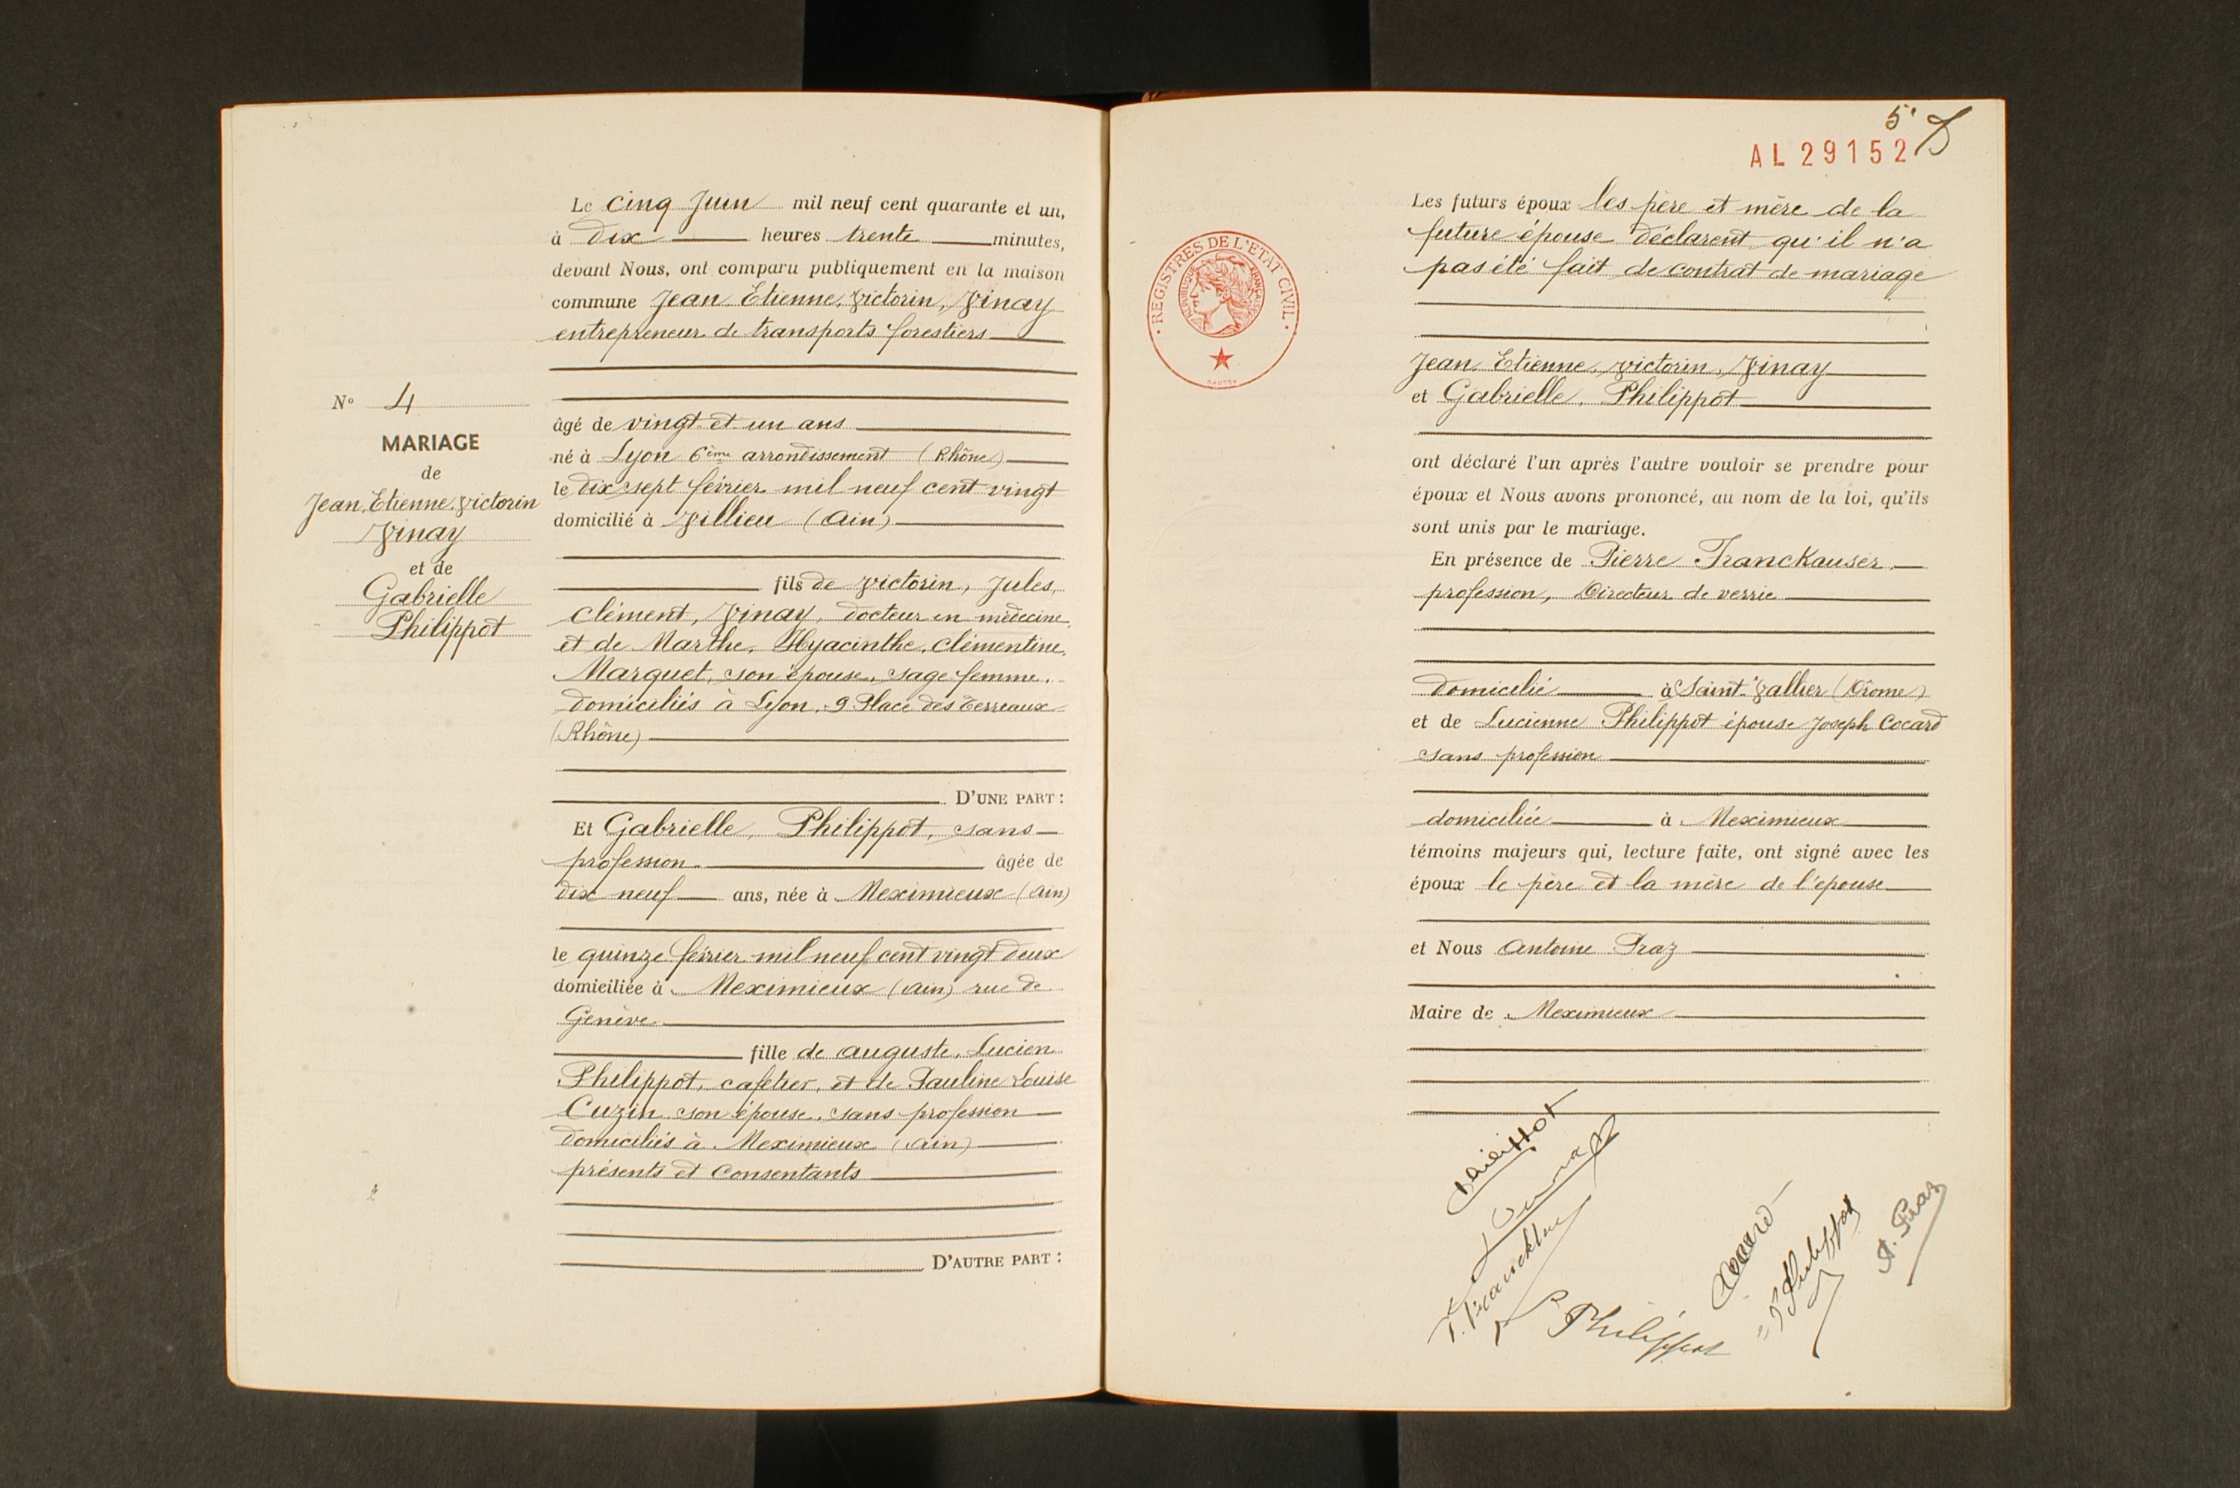 Le cinq Juin mil neuf cent quarante et un,
à dix heures trente minutes,
devant Nous, ont comparu publiquement en la maison
commune Jean, Etienne, Victorin, Vinay
entrepreneur de transports forestiers
âgé de vingt et un ans
né à Lyon 6ème arrondissement (Rhône)
le dix sept février mil neuf cent vingt
domicilié à Villieu (Ain)
fils de Victorin, Jules,
Clément, Vinay, docteur en médecine
et de Marthe, Hyacinthe, Clémentine,
Marquet, son épouse, sage femme,
domiciliés à Lyon, 9 Place des Terreaux
(Rhône)
D'UNE PART :
Et Gabrielle, Philippot, sans
profession âgée de
dix neuf ans, née à Meximieux (Ain)
le quinze février mil neuf cent vingt deux
domiciliée à Meximieux (Ain) rue de
Genève
fille de Auguste, Lucien
Philippot, cafetier, et de Pauline Louise
Cuzin son épouse, sans profession
domiciliés à Meximieux (Ain)
présents et consentants
D'AUTRE PART :
N° 4
MARIAGE
de
Jean, Etienne, Victorin
Vinay
et de
Gabrielle
Philippot
5
AL 29152
REGISTRES DE L'ETAT CIVIL
Les futurs époux les père et mère de la
future épouse déclarent qu'il n'a
pas été fait de contrat de mariage
Jean, Etienne, Victorin, Vinay
et Gabrielle, Philippot
ont déclaré l'un après l'autre vouloir se prendre pour
époux et Nous avons prononcé, au nom de la loi, qu'ils
sont unis par le mariage.
En présence de Pierre Franckauser,
profession, Directeur de verrie
domicilié à Saint-Vallier (Drôme)
et de Lucienne Philippot épouse Joseph Cocard
sans profession
domiciliée à Meximieux
témoins majeurs qui, lecture faite, ont signé avec les
époux le père et la mère de l'epouse
et Nous Antoine Praz
Maire de Meximieux
Philippot
Vinay
Cocard
Philippot
P Philippot
A. Praz